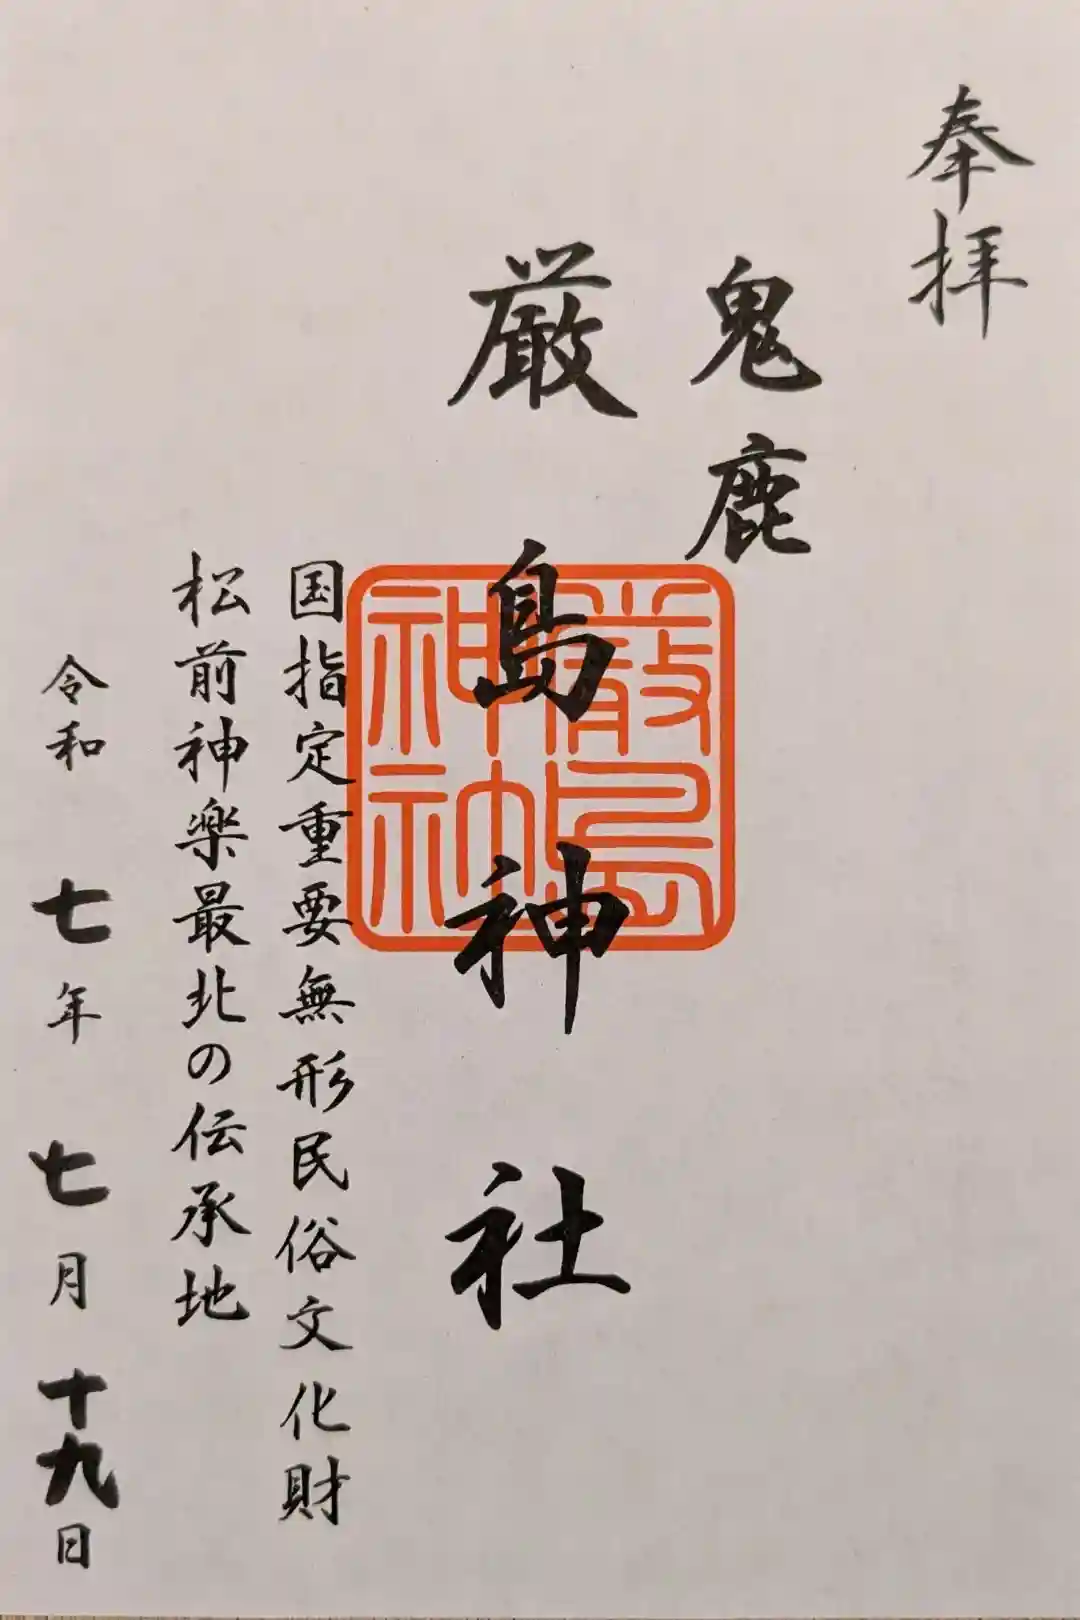 奉拝
鬼鹿
厳島神社
嚴島神社
国指定重要無形民俗文化財
松前神楽最北の伝承地
令和七年七月十九日